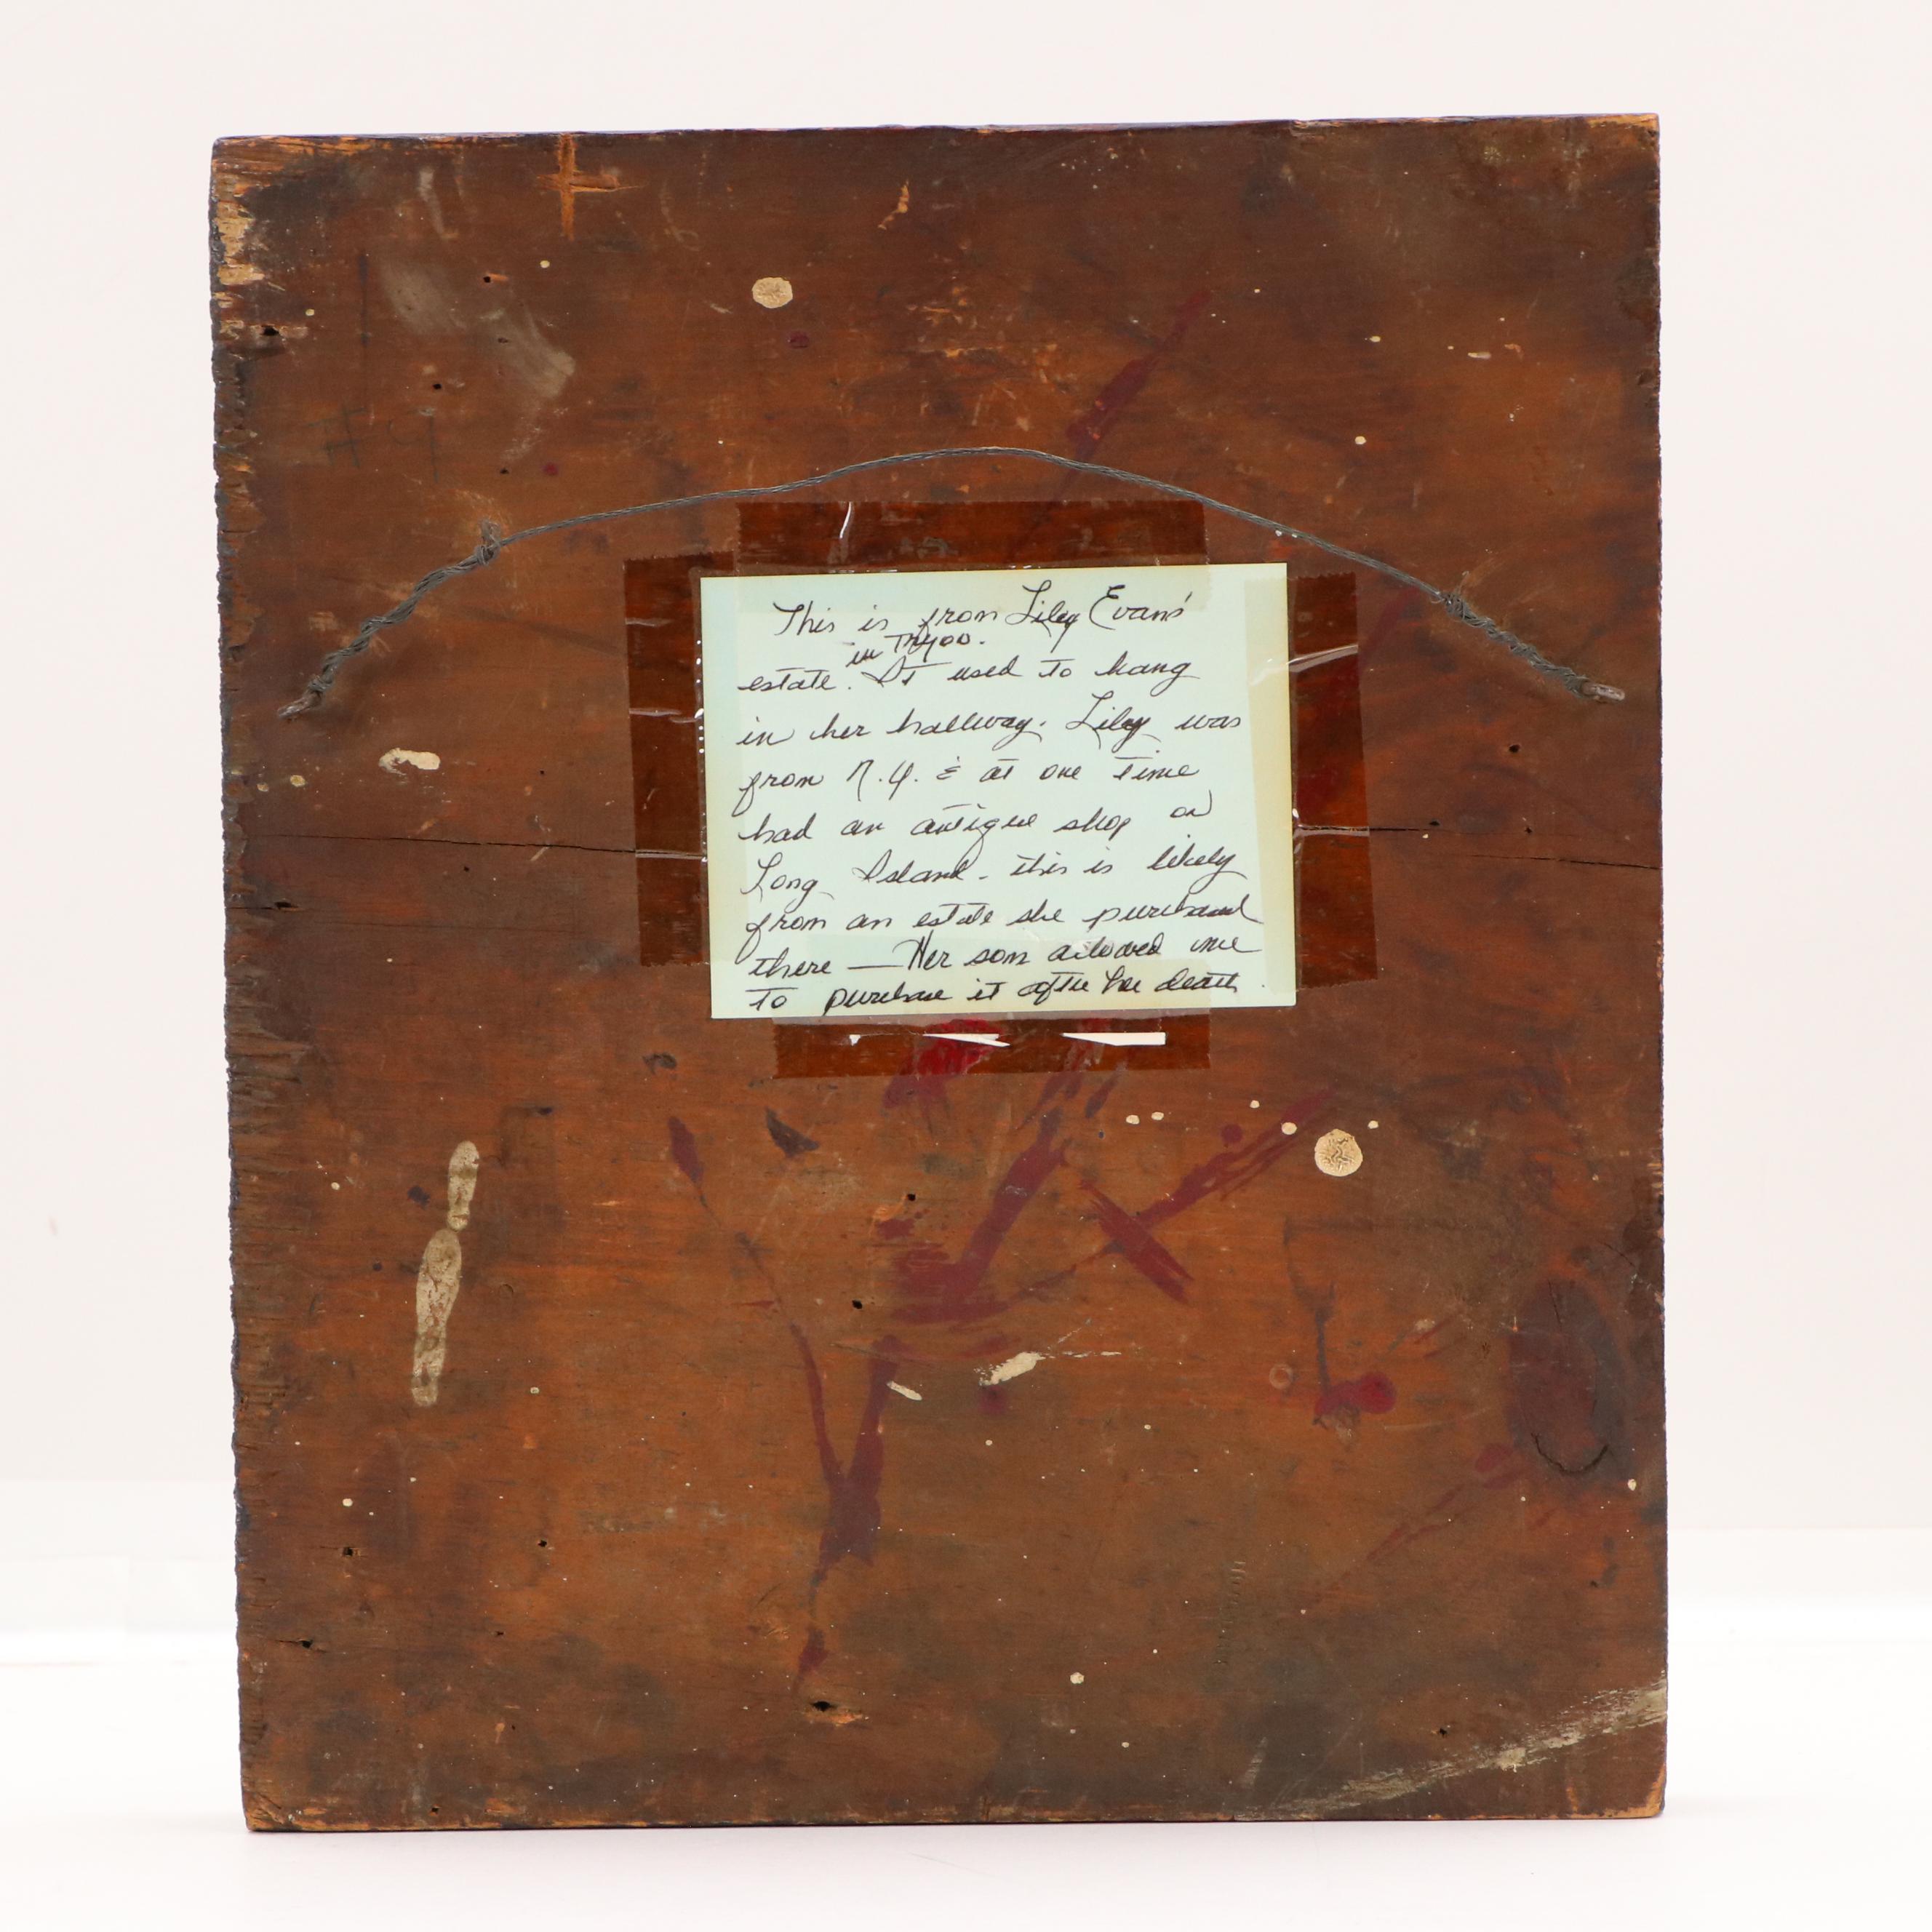 This is from Lily Evans'
in Tryon.
estate. It used to hang
in her hallway. Lily was
from N.Y. & at one time
had an antique shop on
Long Island - this is likely
from an estate she purchased
there — Her son allowed me
to purchase it after her death.